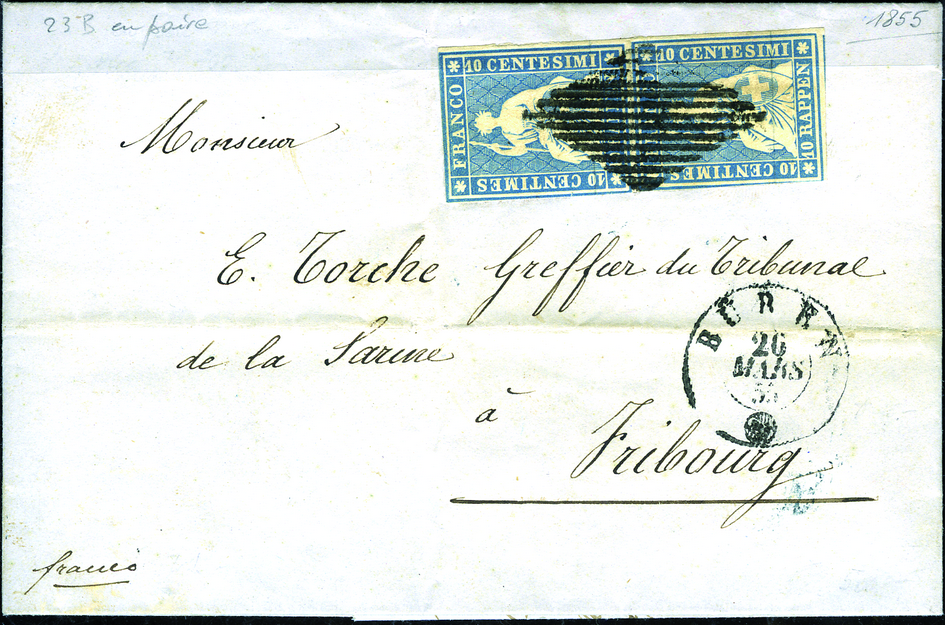 23B en paire
1855
10 CENTESIMI 10 CENTESIMI
FRANCO 10 RAPPEN
10 CENTIMES 10 CENTIMES
Monsieur
E. Torche Greffier du Tribunal
de la Sarine
à
Fribourg
franco
BÜREN
20
MARS
55